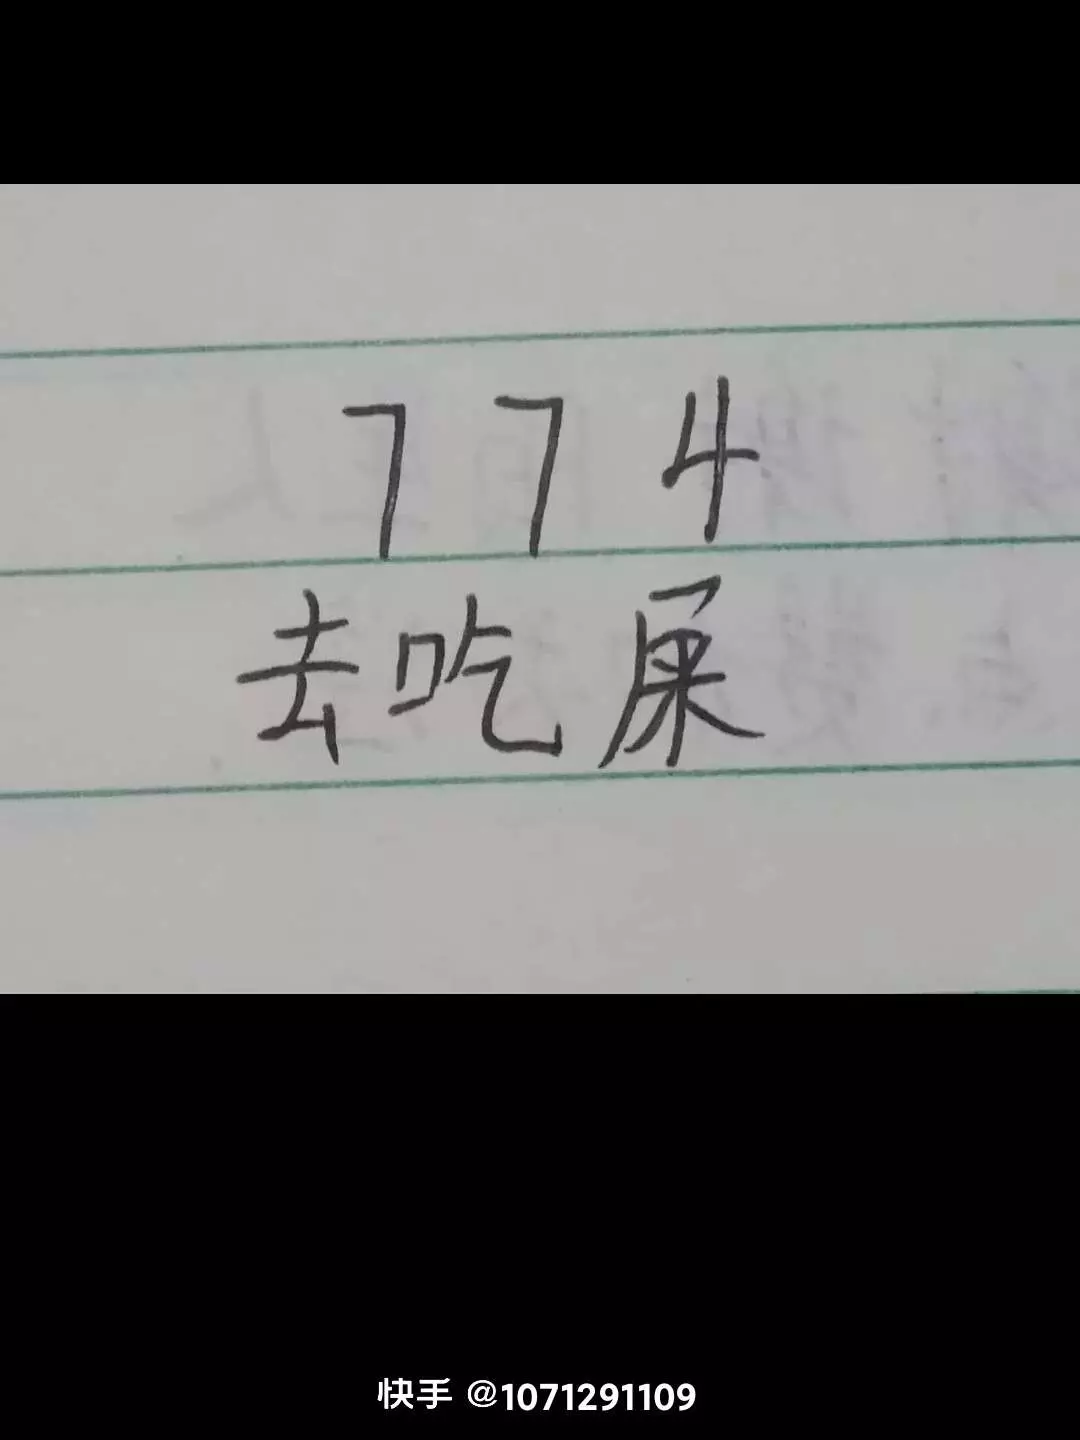 774
去吃屎
快手 @1071291109